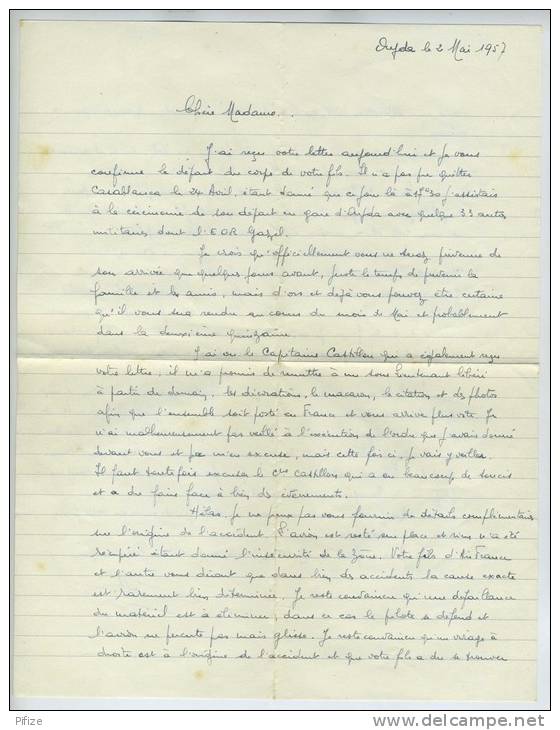 Oujda le 2 Mai 1957
Chère Madame.
J'ai reçu votre lettre aujourd'hui et je vous
confirme le départ du corps de votre fils. Il n'a pas pu quitter
Casablanca le 24 Avril, étant donné que ce jour là à 17h30 j'assistais
à la cérémonie de son départ en gare d'Oujda avec quelque 33 autres
militaires dont l'EOR Gazel.
Je crois qu'officiellement vous ne serez prévenue de
son arrivée que quelques jours avant, juste le temps de prévenir la
famille et les amis, mais d'ors et déjà vous pouvez être certaine
qu'il vous sera rendu au cours du mois de Mai et probablement
dans la deuxième quinzaine.
J'ai vu le Capitaine Castillon qui a également reçu
votre lettre, il m'a promis de remettre à un sous lieutenant libéré
à partir de demain, les décorations, le macaron, la citation et des photos
afin que l'ensemble soit posté en France et vous arrive plus vite. Je
n'ai malheureusement pas veillé à l'exécution de l'ordre que j'avais donné
devant vous et je m'en excuse, mais cette fois ci, je vais y veiller.
Il faut toutefois excuser le Cne Castillon qui a eu beaucoup de soucis
et a du faire face à bien des évènements.
Hélas, je ne peux pas vous fournir de détails complémentaires
sur l'origine de l'accident. L'avion est resté sur place et rien n'a été
récupéré étant donné l'insécurité de la zône. Votre fils d'Air France
et l'autre vous diront que dans bien des accidents la cause exacte
est rarement bien déterminée. Je reste convaincu qu'une défaillance
du matériel est à éliminer, dans ce cas le pilote se défend et
l'avion ne percute pas mais glisse. Je reste convaincu qu'un virage à
droite est à l'origine de l'accident et que votre fils a du se trouver
Pfize
delcampe.net